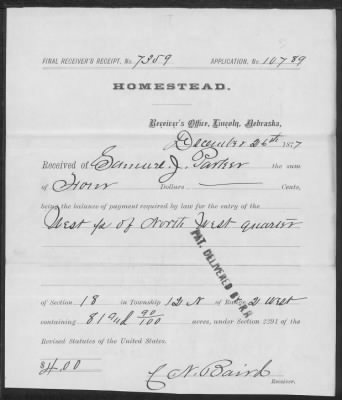 FINAL RECEIVER'S RECEIPT, No. 7359 APPLICATION, No. 10789
HOMESTEAD.
Receiver's Office, Lincoln, Nebraska,
December 26th 1877
Received of Samuel J. Parker the sum
of Four Dollars Cents,
being the balance of payment required by law for the entry of the
West ½ of North West quarter
PAT. DELIVERED
of Section 18 in Township 12 N of Range 2 West
containing 81 and 90/100 acres, under Section 2291 of the
Revised Statutes of the United States.
$4.00
C. N. Baird
Receiver.